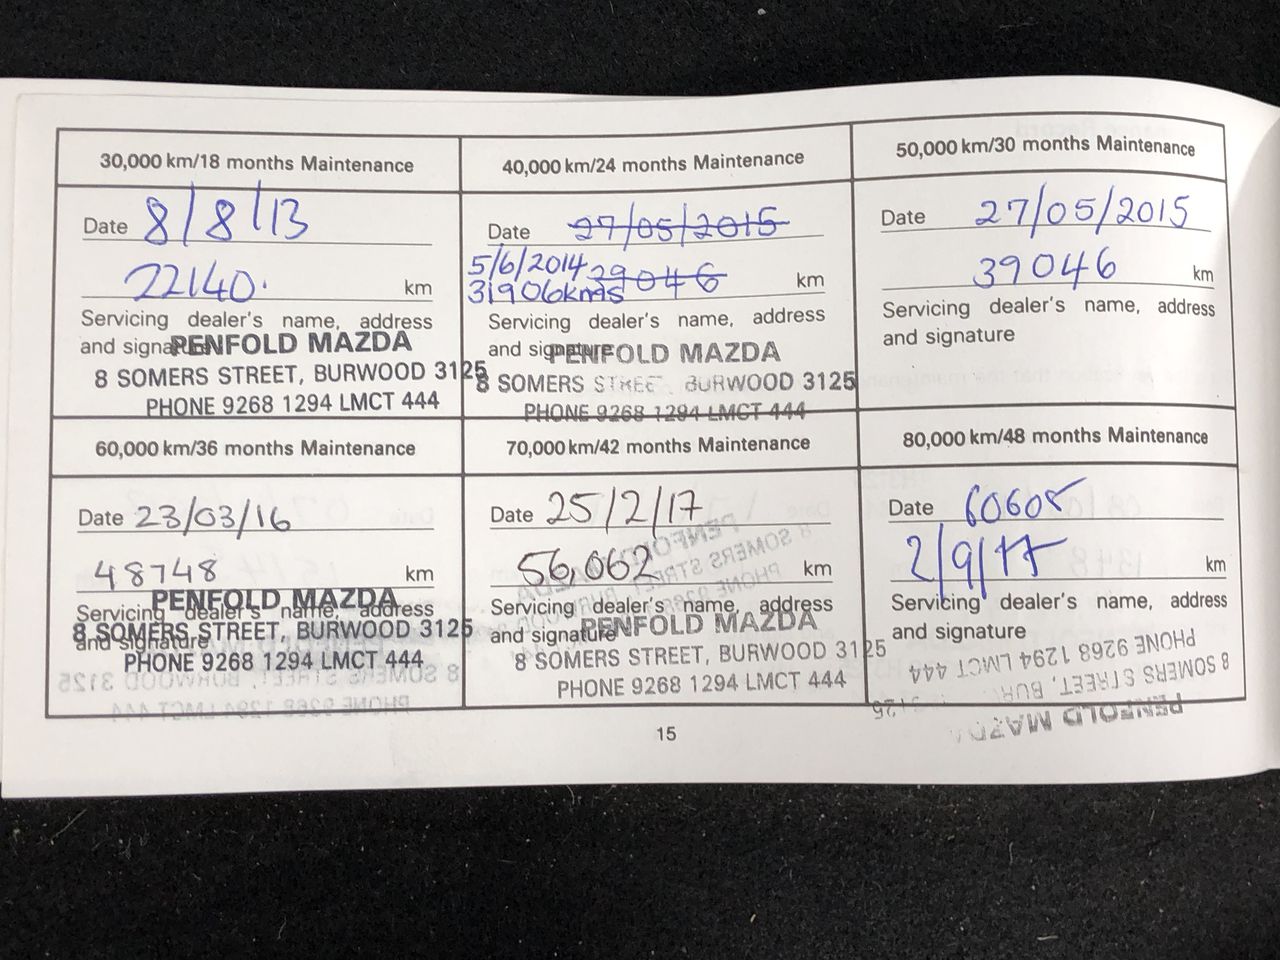 30,000 km/18 months Maintenance
Date 8/8/13
22140. km
Servicing dealer's name, address
and signature
PENFOLD MAZDA
8 SOMERS STREET, BURWOOD 3125
PHONE 9268 1294 LMCT 444
40,000 km/24 months Maintenance
Date 27/05/2015
5/6/2014 39046 km
31906kms
Servicing dealer's name, address
and signature
PENFOLD MAZDA
8 SOMERS STREET BURWOOD 3125
PHONE 9268 1294 LMCT 444
50,000 km/30 months Maintenance
Date 27/05/2015
39046 km
Servicing dealer's name, address
and signature
60,000 km/36 months Maintenance
Date 23/03/16
48748 km
Servicing dealer's name, address
and signature
PENFOLD MAZDA
8 SOMERS STREET, BURWOOD 3125
PHONE 9268 1294 LMCT 444
70,000 km/42 months Maintenance
Date 25/2/17
56,062 km
Servicing dealer's name, address
and signature
PENFOLD MAZDA
8 SOMERS STREET, BURWOOD 3125
PHONE 9268 1294 LMCT 444
80,000 km/48 months Maintenance
Date 60605
2/9/17 km
Servicing dealer's name, address
and signature
PHONE 9268 1294 LMCT 444
8 SOMERS STREET, BUR 3125
PENFOLD MAZDA
15